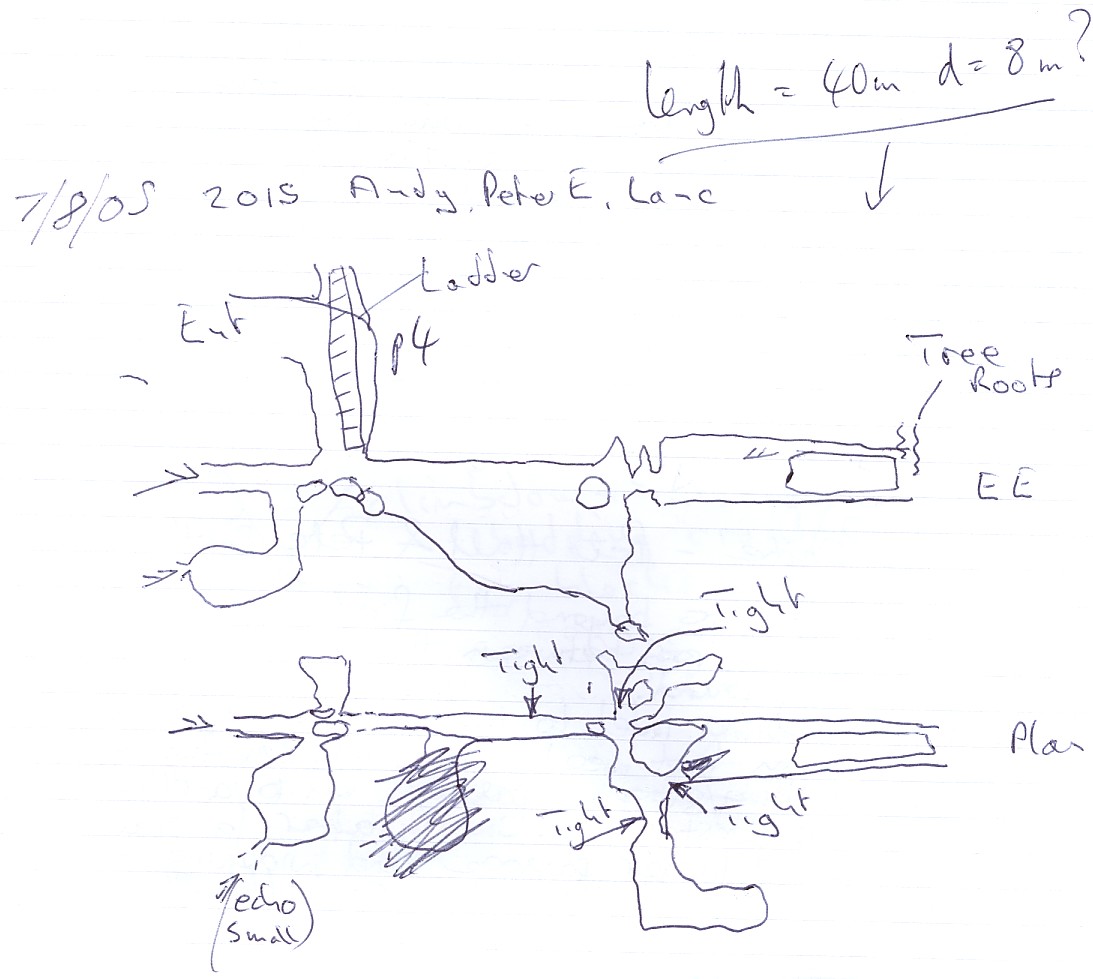 length = 40m d = 8m?
7/8/05 2015 Andy, Peter E, Lank
Ladder
Ent
p4
Tree
Roots
EE
Tight
Tight
Plan
Tight
Tight
(echo
small)